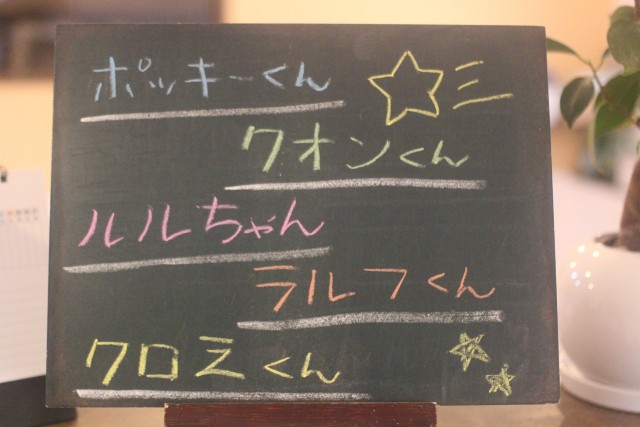 ポッキーくん
クオンくん
ルルちゃん
ラルフくん
クロミくん